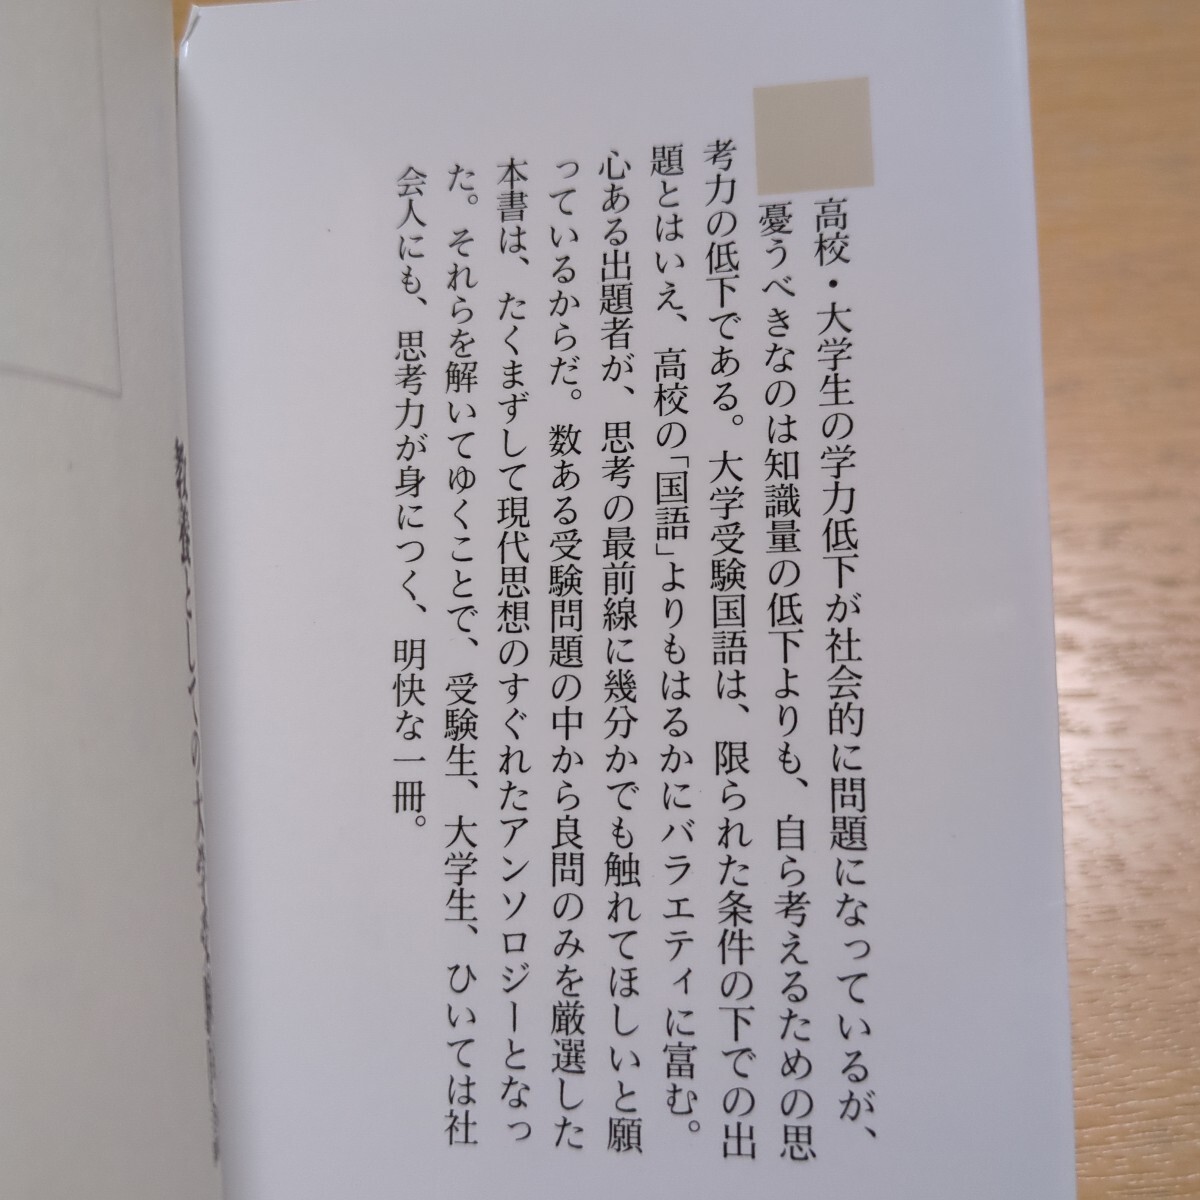 高校・大学生の学力低下が社会的に問題になっているが、
憂うべきなのは知識量の低下よりも、自ら考えるための思
考力の低下である。大学受験国語は、限られた条件の下での出
題とはいえ、高校の「国語」よりもはるかにバラエティに富む。
心ある出題者が、思考の最前線に幾分かでも触れてほしいと願
っているからだ。数ある受験問題の中から良問のみを厳選した
本書は、たくまずして現代思想のすぐれたアンソロジーとなっ
た。それらを解いてゆくことで、受験生、大学生、ひいては社
会人にも、思考力が身につく、明快な一冊。
教養としての大学受験国語